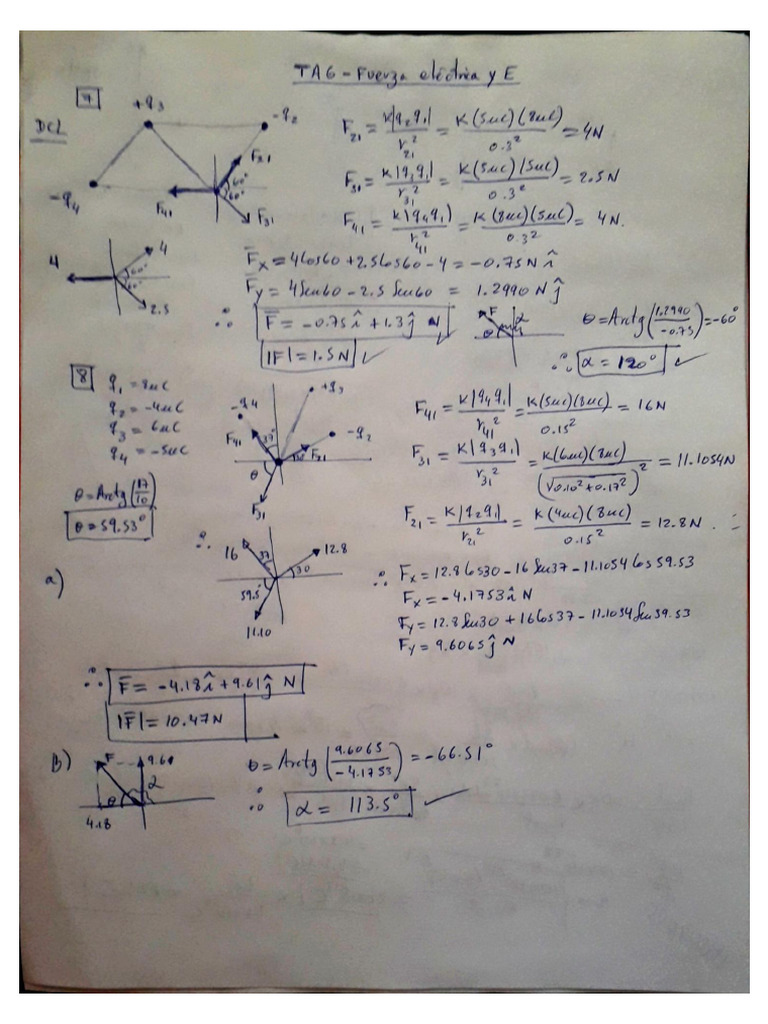 TA6 - Fuerza eléctrica y E
7
DCL
+q3
-q2
-q4
F21
60°
60°
F41
F31
F21 = K|q2q1|/r21² = K(5uC)(8uC)/0.3² = 4N
F31 = K|q3q1|/r31² = K(5uC)(5uC)/0.3² = 2.5N
F41 = K|q4q1|/r41² = K(8uC)(5uC)/0.3² = 4N.
4
4
60°
60°
2.5
F̅x = 4Cos60 + 2.5Cos60 - 4 = -0.75 N î
F̅y = 4Sen60 - 2.5 Sen60 = 1.2990 N ĵ
∴ F̅ = -0.75 î + 1.3 ĵ N
|F| = 1.5N ✓
F
α
θ
θ = Arctg(1.2990/-0.75) = -60°
∴ α = 120° ✓
8
q1 = 8uC
q2 = -4uC
q3 = 6uC
q4 = -5uC
θ = Arctg(17/10)
θ = 59.53°
+q3
-q4
-q2
F41
37°
30°
F21
θ
F31
F41 = K|q4q1|/r41² = K(5uC)(8uC)/0.15² = 16N
F31 = K|q3q1|/r31² = K(6uC)(8uC)/(√0.10²+0.17²)² = 11.1054N
F21 = K|q2q1|/r21² = K(4uC)(8uC)/0.15² = 12.8N. ∴
a)
∴
16
37
12.8
30
59.5°
11.10
∴ Fx = 12.8Cos30 - 16 Sen37 - 11.1054 Cos 59.53
Fx = -4.1753 î N
Fy = 12.8Sen30 + 16Cos37 - 11.1054 Sen 59.53
Fy = 9.6065 ĵ N
∴ F̅ = -4.18 î + 9.61 ĵ N
|F̅| = 10.47N
B)
F
9.60
α
θ
4.18
θ = Arctg(9.6065/-4.1753) = -66.51°
∴ α = 113.5° ✓